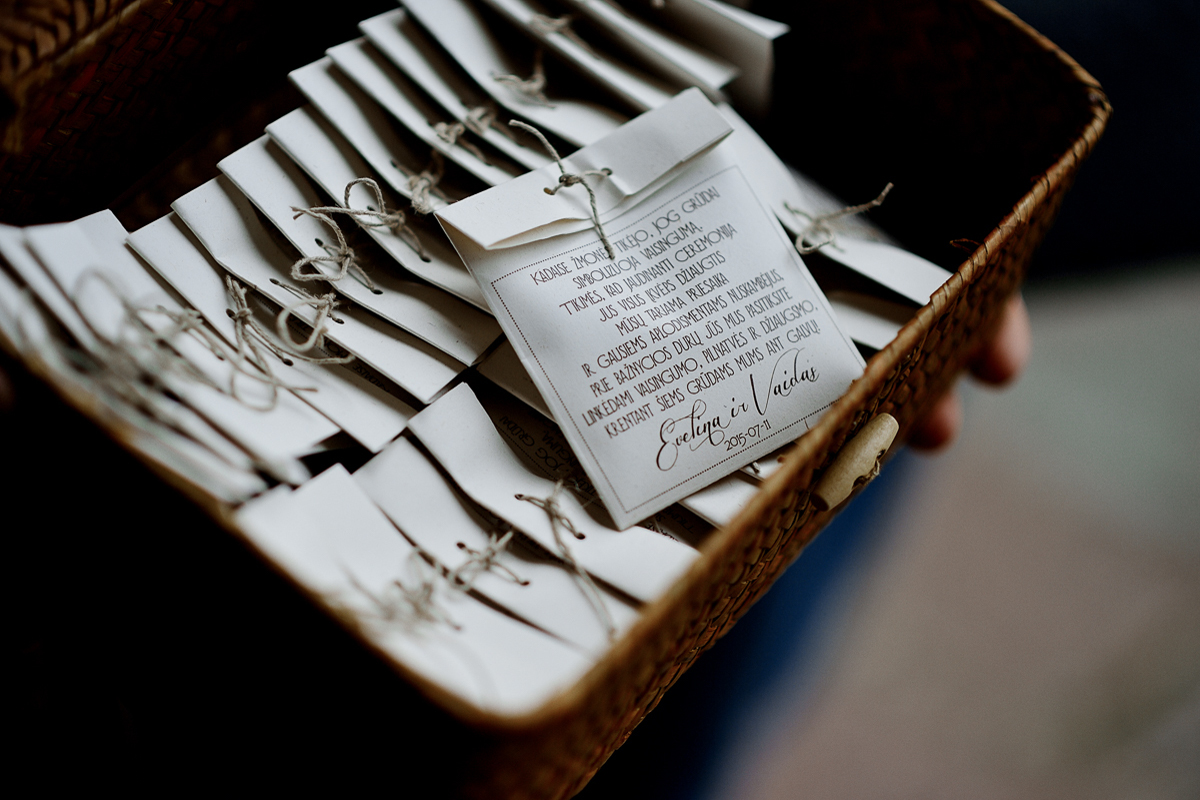 KADAISE ŽMONĖS TIKĖJO, JOG GRŪDAI
SIMBOLIZUOJA VAISINGUMĄ,
TIKIMĖS, KAD JAUDINANTI CEREMONIJA
JUS VISUS ĮKVĖPS DŽIAUGTIS
MŪSŲ TARIAMA PRIESAIKA
IR GAUSIEMS APLODISMENTAMS NUSKAMBĖJUS,
PRIE BAŽNYČIOS DURŲ JŪS MUS PASITIKSITE
LINKĖDAMI VAISINGUMO, PILNATVĖS IR DŽIAUGSMO,
KRENTANT ŠIEMS GRŪDAMS MUMS ANT GALVŲ!
Evelina ir Vaidas
2015-07-11